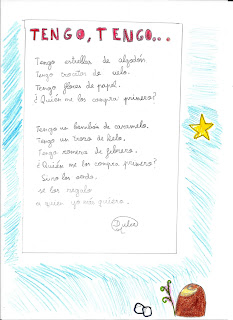 TENGO, TENGO...
Tengo estrellas de algodón
Tengo trocitos de velo.
Tengo flores de papel.
¿Quién me los compra primero?
Tengo un bombón de caramelo.
Tengo un trozo de hielo.
Tengo romero de febrero.
¿Quién me los compra primero?
Si no los vendo
se los regalo
a quien yo más quiero.